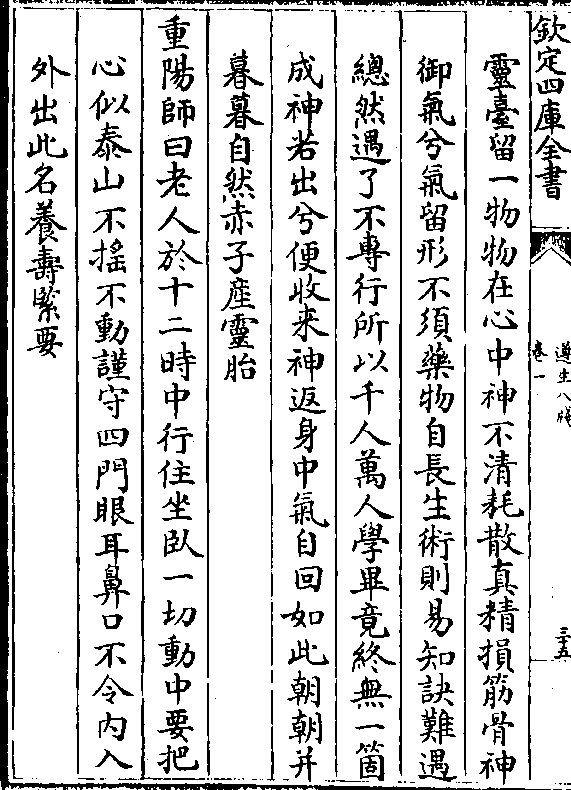 欽定四庫全書
遵生八牋
卷一
三十五
靈臺留一物物在心中神不清耗散真精損筋骨神
御氣兮氣留形不須藥物自長生術則易知訣難遇
總然遇了不專行所以千人萬人學畢竟終無一箇
成神若出兮便收来神返身中氣自回如此朝朝并
暮暮自然赤子産靈胎
重陽師曰老人於十二時中行住坐臥一切動中要把
心似泰山不搖不動謹守四門眼耳鼻口不令內入
外出此名養壽緊要